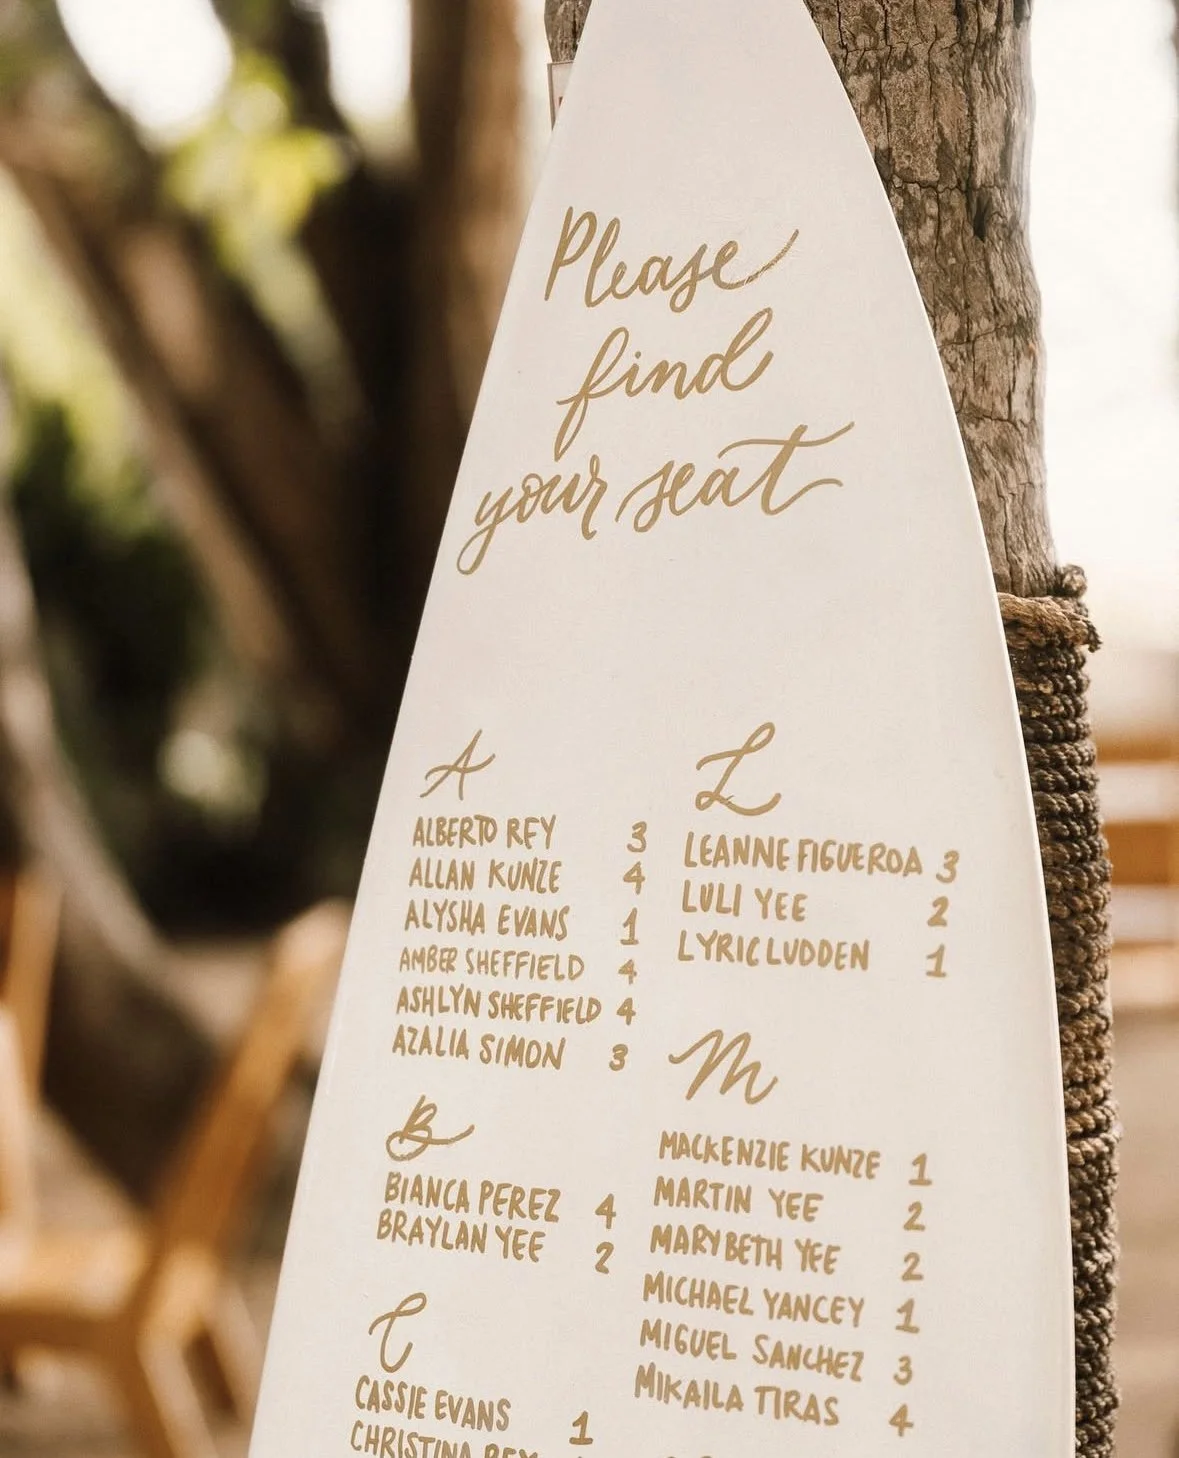 Please
find
your seat
A
ALBERTO REY 3
ALLAN KUNZE 4
ALYSHA EVANS 1
AMBER SHEFFIELD 4
ASHLYN SHEFFIELD 4
AZALIA SIMON 3
B
BIANCA PEREZ 4
BRAYLAN YEE 2
C
CASSIE EVANS 1
CHRISTINA REY
L
LEANNE FIGUEROA 3
LULI YEE 2
LYRIC LUDDEN 1
M
MACKENZIE KUNZE 1
MARTIN YEE 2
MARYBETH YEE 2
MICHAEL YANCEY 1
MIGUEL SANCHEZ 3
MIKAILA TIRAS 4